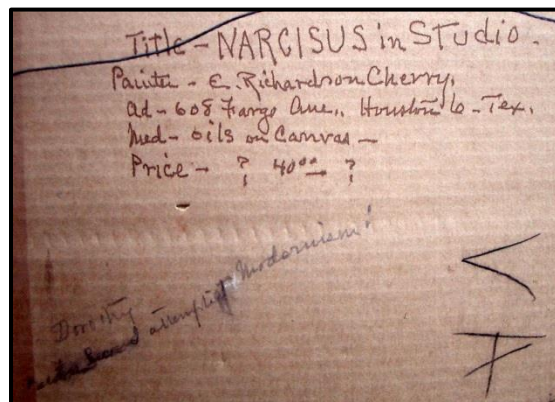 Title - NARCISUS in STUDIO.
Painter - E. Richardson Cherry,
Ad - 608 Fargo Ave., Houston 6 - Tex.
Med - Oils on Canvas -
Price - ? 40⁰⁰ ?
Dorothy
Second attempt of Modernism!